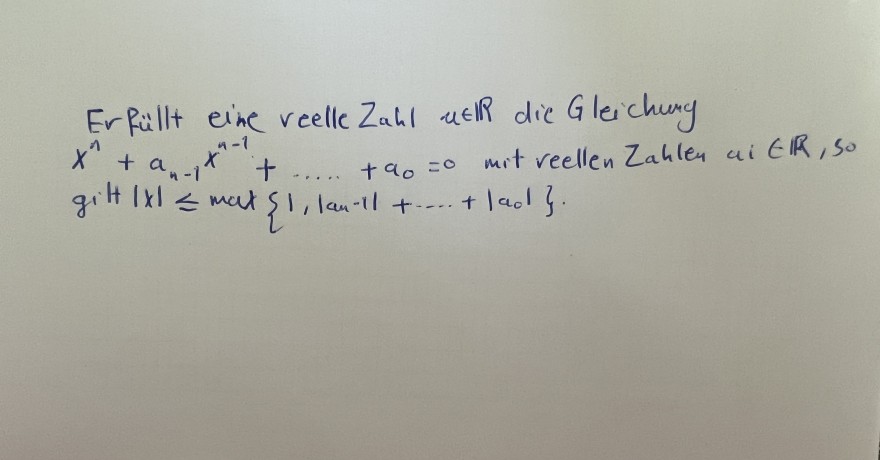 Erfüllt eine reelle Zahl u∈ℝ die Gleichung
xⁿ + aₙ₋₁xⁿ⁻¹ + ..... + a₀ = 0 mit reellen Zahlen ai ∈ ℝ, so
gilt |x| ≤ max {1, |an-1| + .... + |a₀| }.